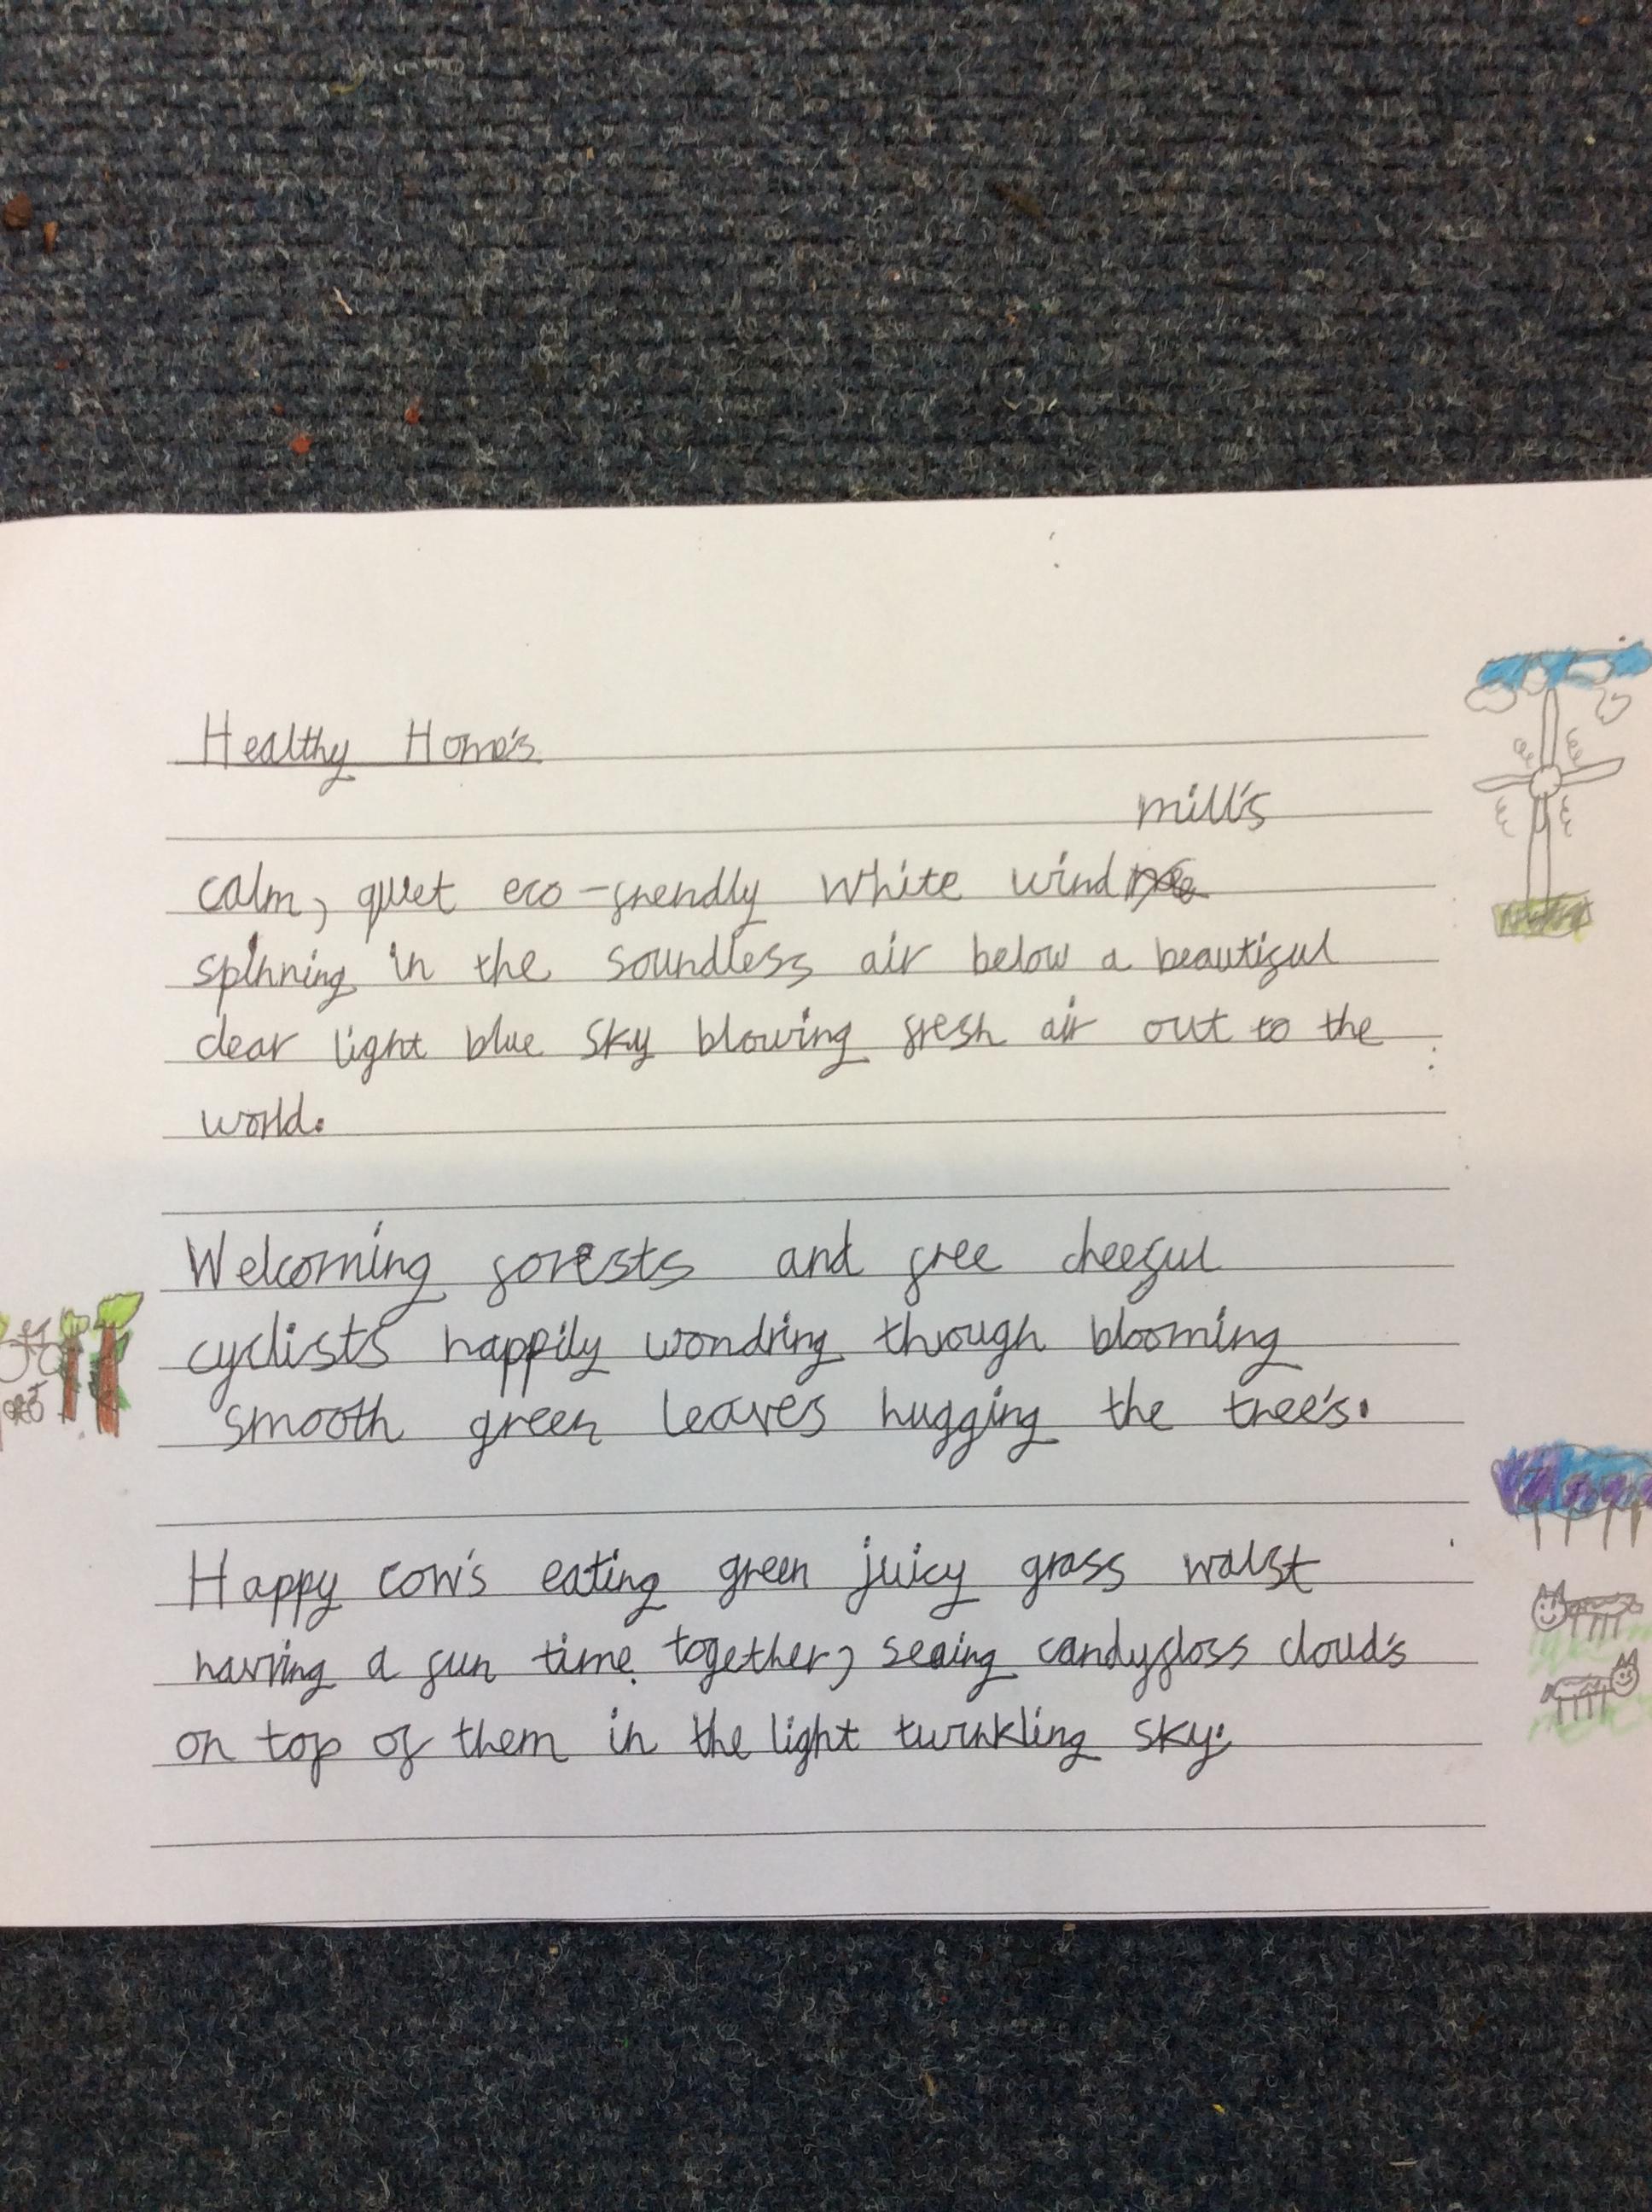 Healthy Home's
mill's
calm, quiet eco-friendly white wind
spinning in the soundless air below a beautiful
clear light blue sky blowing fresh air out to the
world.
Welcoming forests and free cheeful
cyclists happily wondring through blooming
smooth green leaves hugging the tree's.
Happy cow's eating green juicy grass walst
having a fun time together, seaing candyfloss cloud's
on top of them in the light twinkling sky.